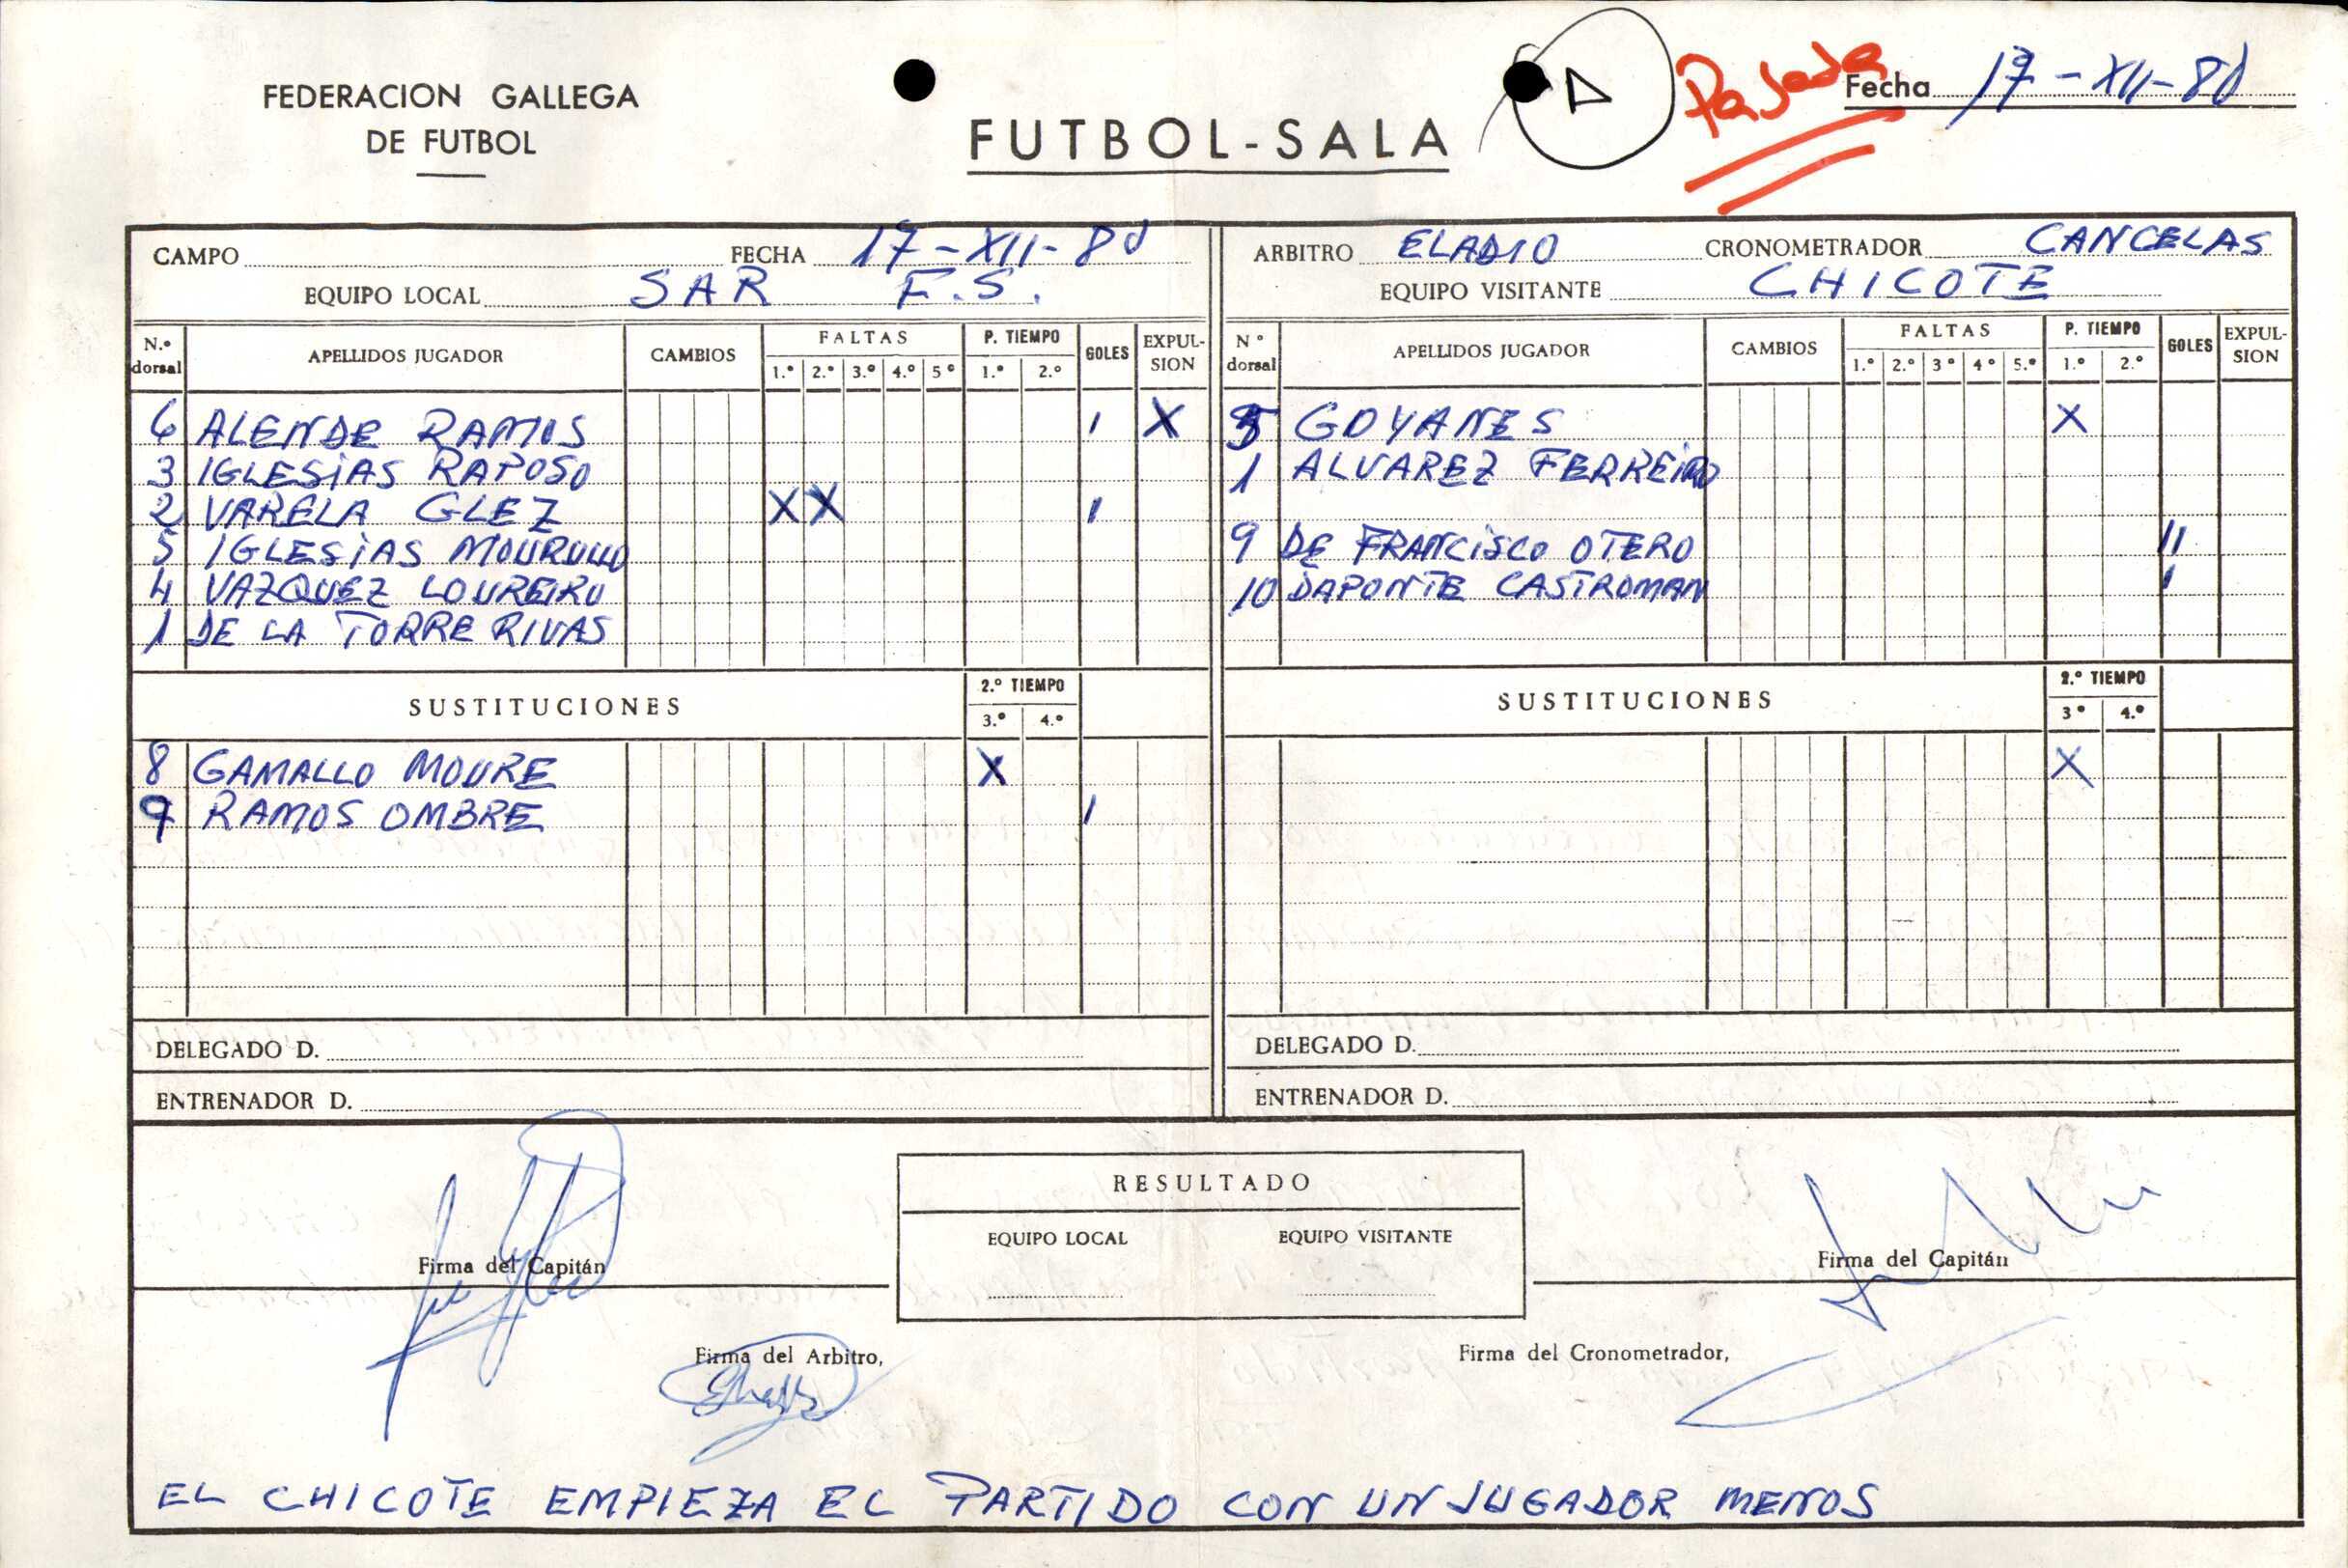 FEDERACION GALLEGA
DE FUTBOL
FUTBOL-SALA
Pasada
Fecha 17-XII-80
CAMPO FECHA 17-XII-80
EQUIPO LOCAL SAR F.S.
ARBITRO ELADIO CRONOMETRADOR CANCELAS
EQUIPO VISITANTE CHICOTE
N.º dorsal APELLIDOS JUGADOR CAMBIOS FALTAS P. TIEMPO GOLES EXPUL-SION
1.º 2.º 3.º 4.º 5º 1.º 2.º
6 ALENDE RAMOS I X
3 IGLESIAS RAPOSO
2 VARELA GLEZ X X I
5 IGLESIAS MOURULLO
4 VAZQUEZ LOUREIRO
1 DE LA TORRE RIVAS
SUSTITUCIONES 2.º TIEMPO
3.º 4.º
8 GAMALLO MOURE X
9 RAMOS OMBRE I
DELEGADO D.
ENTRENADOR D.
Nº dorsal APELLIDOS JUGADOR CAMBIOS FALTAS P. TIEMPO GOLES EXPUL-SION
1.º 2.º 3º 4º 5.º 1.º 2.º
GOYANES X
1 ALVAREZ FERREIRO
9 DE FRANCISCO OTERO II
10 DAPONTE CASTROMAN I
SUSTITUCIONES 2.º TIEMPO
3º 4.º
X
DELEGADO D.
ENTRENADOR D.
RESULTADO
EQUIPO LOCAL EQUIPO VISITANTE
Firma del Capitán
Firma del Capitán
Firma del Arbitro,
Firma del Cronometrador,
EL CHICOTE EMPIEZA EL PARTIDO CON UN JUGADOR MENOS